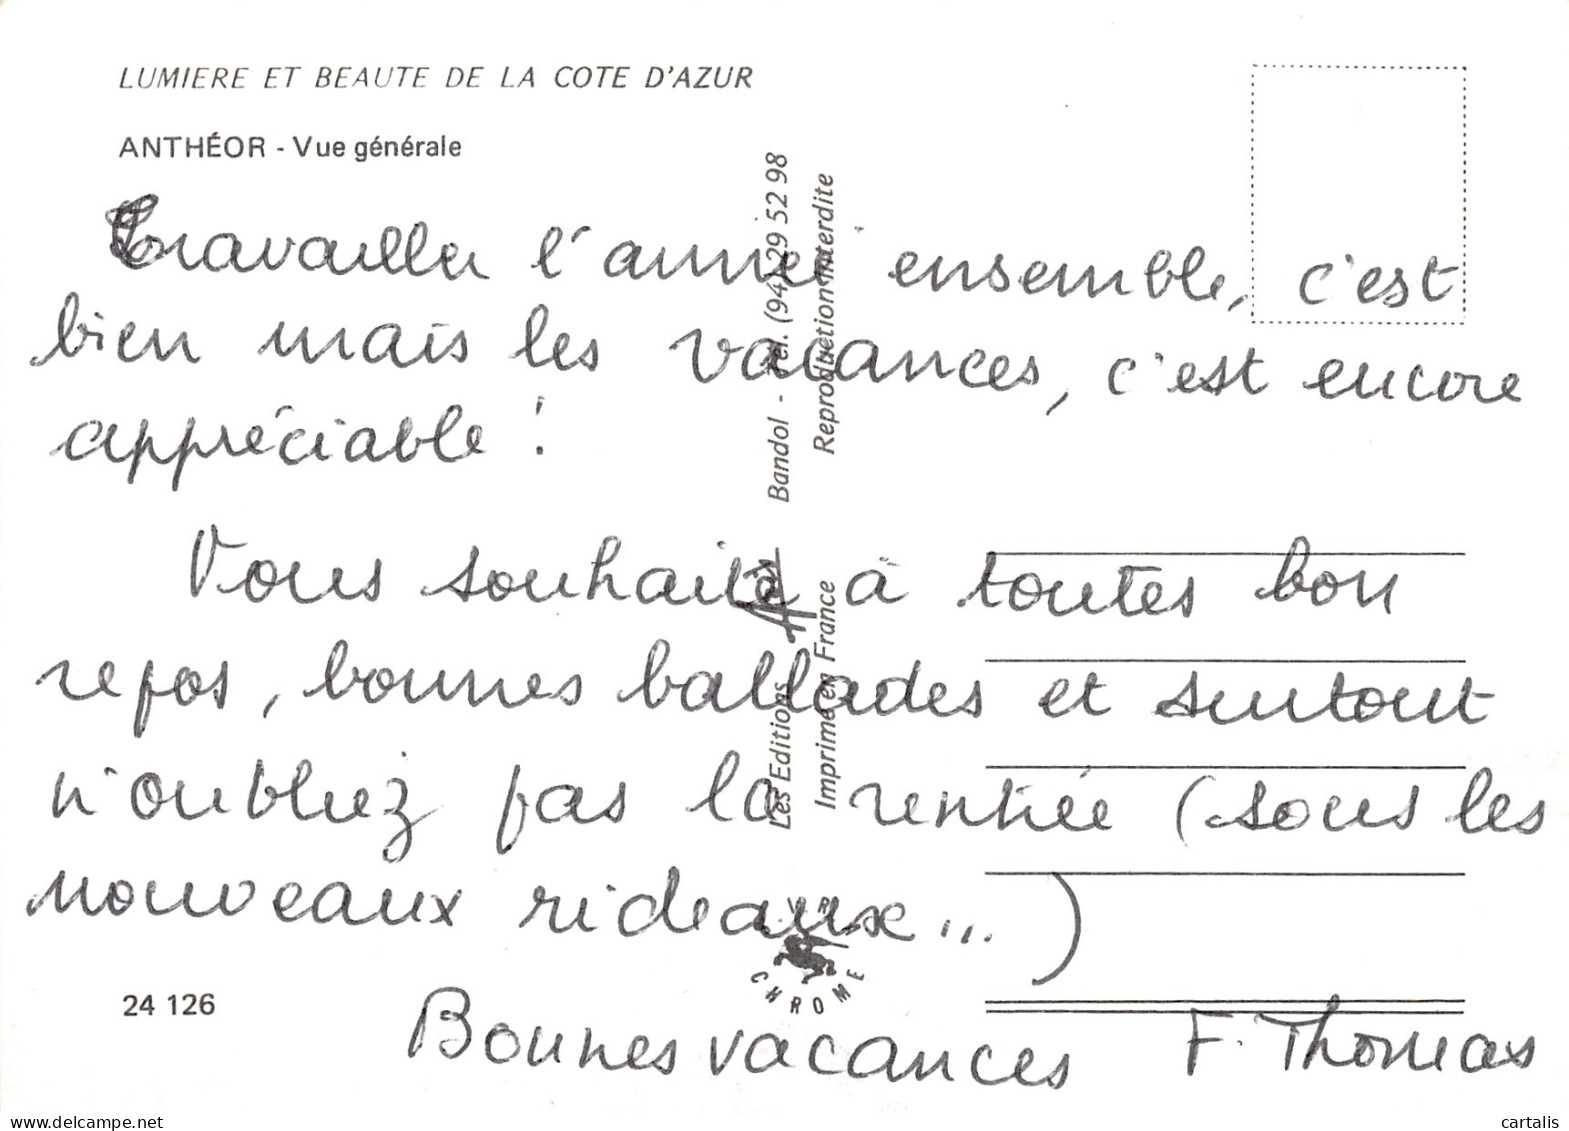 LUMIERE ET BEAUTE DE LA COTE D'AZUR
ANTHÉOR - Vue générale
Travailler l'année ensemble, c'est
bien mais les vacances, c'est encore
appréciable !
Vous souhaite à toutes bon
repos, bonnes ballades et surtout
n'oubliez pas la rentrée (sous les
nouveaux rideaux...)
Bonnes vacances F. Thomas
24 126
Les Editions Bandol - Tél. (94) 29 52 98
Imprimé en France Reproduction interdite
CHROME
delcampe.net
cartalis